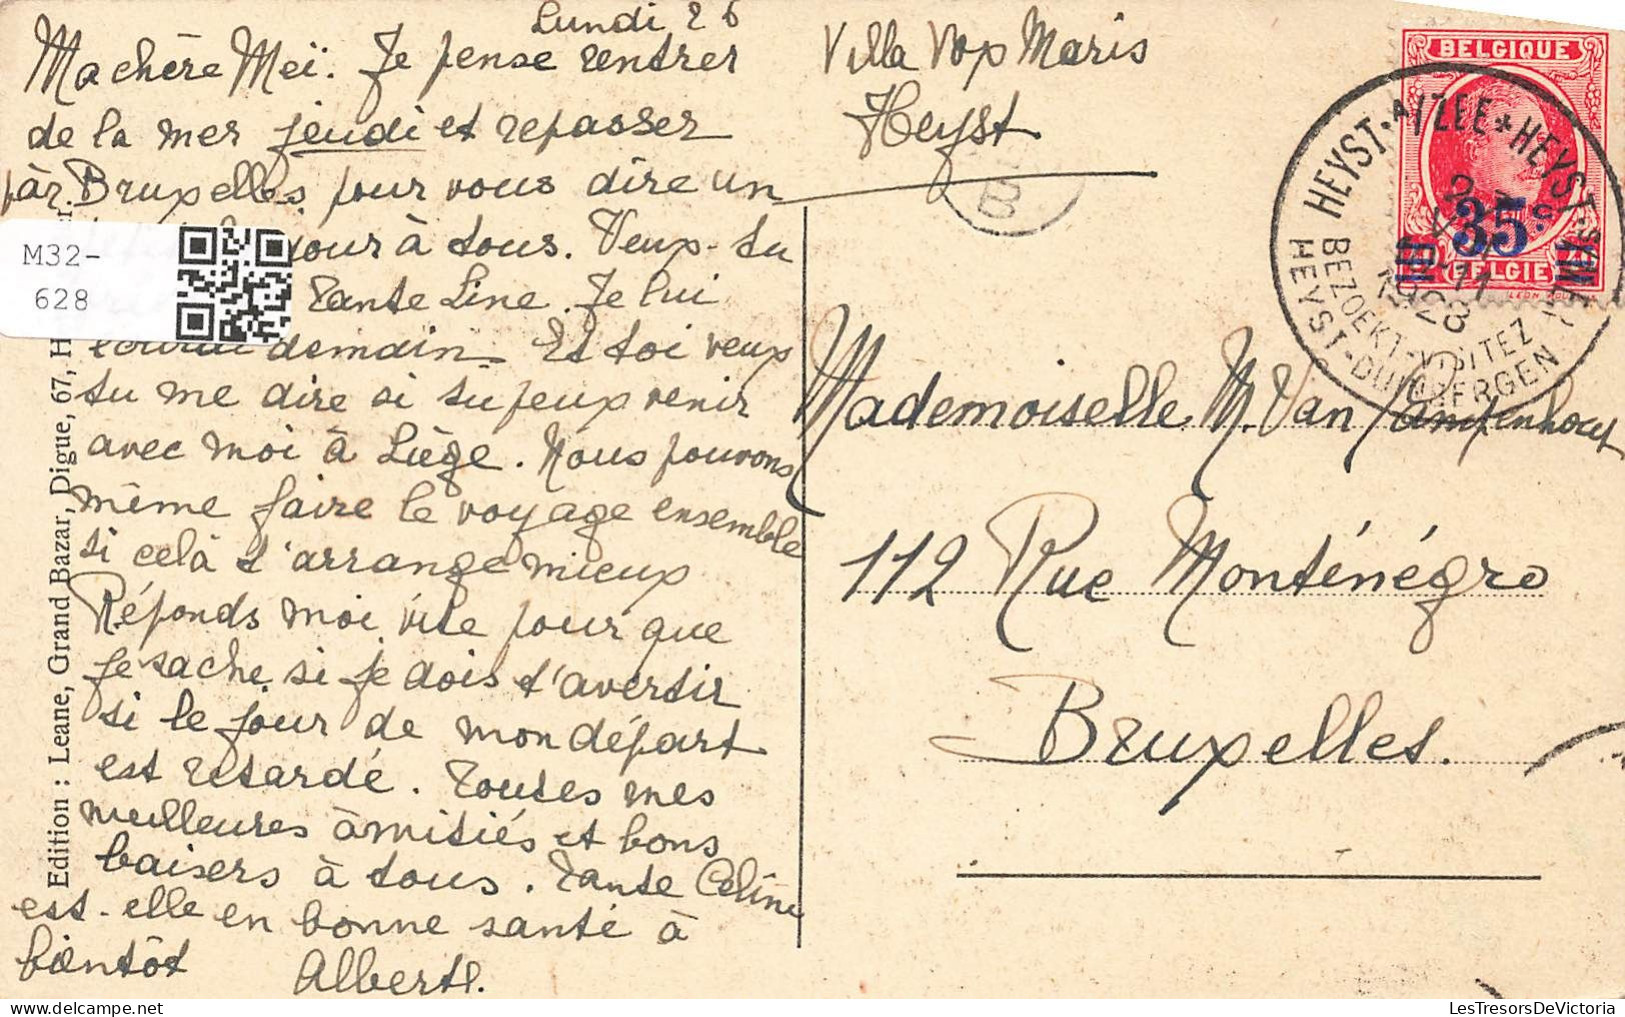 Lundi 26
Ma chère Meï. Je pense rentrer
de la mer jeudi et repasser
par Bruxelles pour vous dire un
jour à tous. Veux-tu
Tante Line. Je lui
demain. Et toi veux
tu me dire si tu peux venir
avec moi à Liège. Nous pouvons
même faire le voyage ensemble
si celà t'arrange mieux
Réponds moi vite pour que
je sache si je dois t'avertir
si le jour de mon départ
est retardé. Toutes mes
meilleures amitiés et bons
baisers à tous. Tante Céline
est-elle en bonne santé à
bientôt Albert.
Villa Vox Maris
Heyst
Mademoiselle M. Van
112 Rue Monténégro
Bruxelles.
BELGIQUE
35c
BELGIE
HEYST-A/ZEE * HEYST-S/MER
1928
BEZOEKT-VISITEZ
HEYST-DUINBERGEN
B
Edition : Leane, Grand Bazar, Digue, 67, H
M32-
628
LesTresorsDeVictoria.com